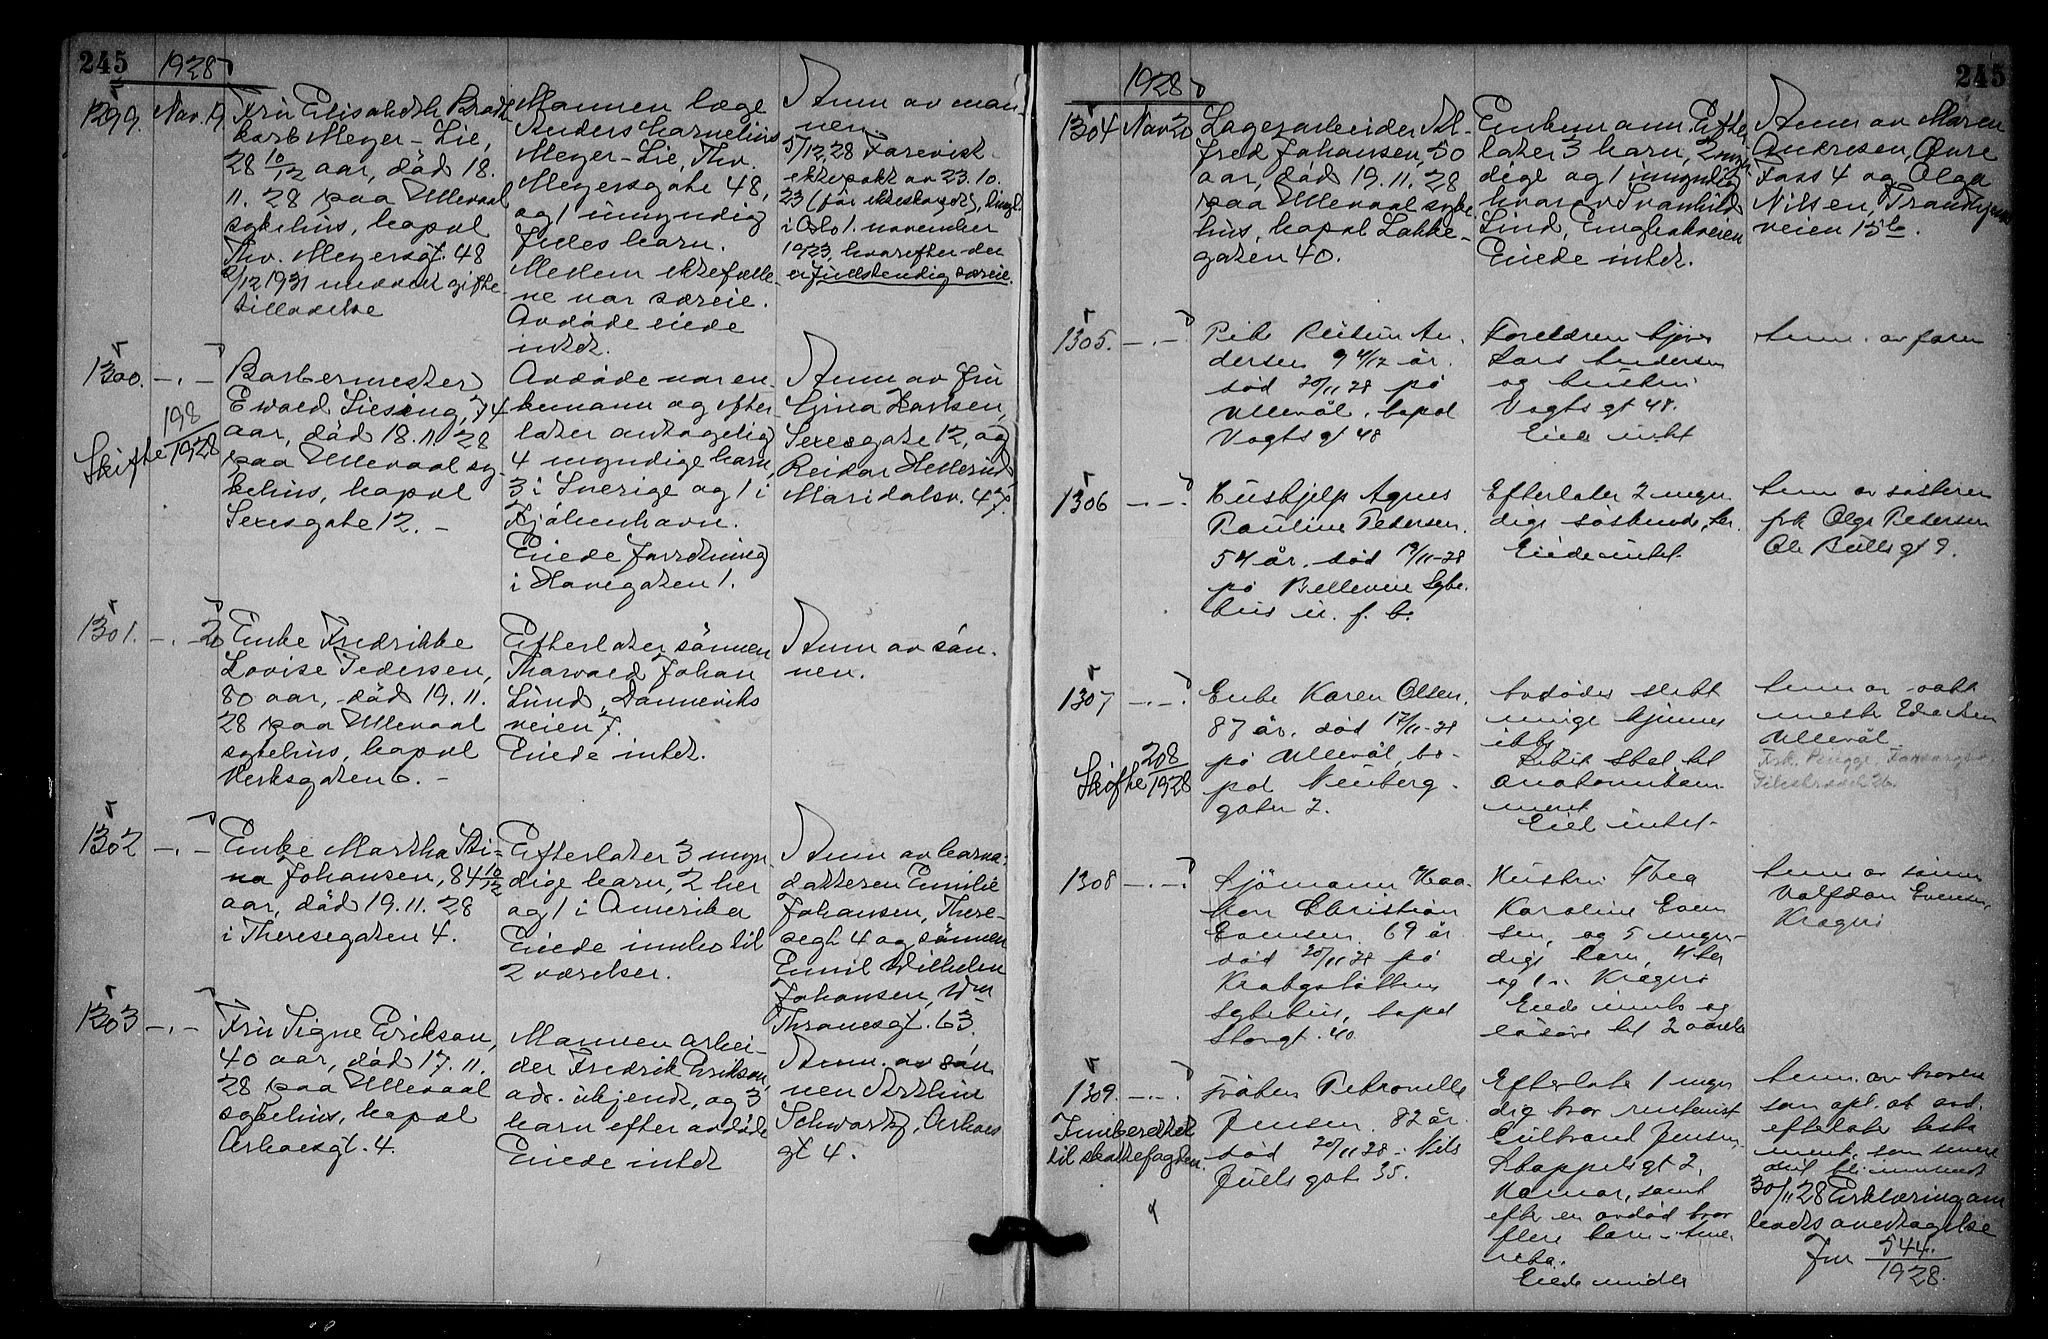 245
1928
1299. Nov. 19.
Fru Elisabeth Brodt-
korb Meyer-Lie,
28 10/12 aar, död 18.
11. 28 paa Ullevaal
sykehus, bopæl
Thv. Meyersgt. 48
2/12 1931 meddelt gifte
tilladelse
Mannen læge
Anders Cornelius
Meyer-Lie, Thv.
Meyersgate 48,
og 1 umyndig
fælles barn.
Mellem ektefælle-
ne var særeie.
Avdöde eiede
intet.
Anm av man-
nen
5/12.28 Forevist
ektepakt av 23.10.
23 (för ekteskapet), tingl.
i Oslo 1. november
1923, hvorefter der
er fuldstendig særeie.
1300. -.-
Skifte 198/1928
Barbermester
Ewald Siesing, 74
aar, död 18.11.28
paa Ullevaal sy-
kehus, bopæl
Sexesgate 12. -
Avdöde var en-
kemann og efter-
later antagelig
4 myndige barn,
3 i Sverige og 1 i
Kjöbenhavn.
Eiede forretning
i Havegaten 1.
Anm av fru
Gina Karlsen,
Sexesgate 12, og
Reidar Hellerud,
Maridalsv. 47.
1301. -.- 20
Enke Fredrikke
Lovise Pedersen,
80 aar, död 19.11.
28 paa Ullevaal
sykehus, bopæl
Verksgaten 6. -
Efterlater sönnen
Thorvald Johan
Lund, Danneviks
veien 7.
Eiede intet.
Anm av sön-
nen.
1302 -.-
Enke Martha Sti-
na Johansen, 84 10/12
aar, död 19.11.28
i Theresegaten 4.
Efterlater 3 myn
dige barn, 2 her
og 1 i Amerika
Eiede innbo til
2 værelser.
Anm av barna:
datteren Emilie
Johansen, There-
segt 4 og sönnen
Emil Wilhelm
Johansen, Wm
Thranesgt. 63.
1303 -.-
Fru Signe Erikson,
40 aar, död 17.11.
28 paa Ullevaal
sykehus, bopæl
Aslroesgt. 4.
Mannen arbei-
der Fredrik Erikson,
adr. ukjendt, og 3
barn efter avdöde
Eiede intet
Anm. av sön
nen Arthur
Schwartz,
gt 4.
245
1928
1304 Nov 20
Lagerarbeider Al-
fred Johansen, 50
aar, död 19.11.28
paa Ullevaal syke
hus, bopæl Lakke-
gaten 40.
Enkemann. Efter
later 3 barn, 2 myn
dige og 1 umyndig
hvorav Svanhild
Lind, Enghakveien
Eiede intet.
Anm av Maren
Andresen, Övre
Foss 4 og Olga
Nilsen, Trondhjems
veien 15b.
1305. -.-
An-
dersen 9 4/12 år.
död 20/11 28 på
Ullevål. bopæl
Vogts gt 48
Foreldrene
Lars Andersen
og hustru
Vogts gt 48.
Eier intet
Anm. av faren
1306 -.-
Hushjelp Agnes
Pauline Pedersen.
54 år. död 19/11-28
på Bellevue Syke-
hus u. f. b.
Efterlater 2 myn
dige söskende, her.
Eiede intet.
Anm av sösteren
frk Olga Pedersen
Ole Bulls gt 9.
1307 -.-
Skifte 208/1928
Enke Karen Olsen.
87 år. död 17/11-28
på Ullevål, bo-
pæl Neuberg-
gaten 2.
Avdödes slekt
minge kjennes
ikke
Liket skal til
anatomikam
meret
Eied intet.
Anm av vakt
mester
Ullevål
Frk. Pugge,
1308 -.-
Sjömann Haa-
kon Christian
Evensen 69 år
död 20/11 28 på
Krohgstöttens
sykehus, bopæl
Storgt. 40
Hustru Thea
Karoline Even
sen, og 5 myn-
dige barn, 4 her
og 1 i Kragerö
Eiede innbo og
lösöre til 2 værelser
Anm av sönnen
Halfdan Evensen,
Kragerö
1309. -.-
Innberettet
til skattefogden.
Fröken Petronelle
Jensen. 82 år.
död 20/11 28 i Niels
Juels gate 35.
Efterlater 1 myn
dig bror rentenist
Gulbrand Jensen
Skappelsgt 2,
Hamar, samt
efter en avdöd bror
flere barn i Ame
rika.
Eiede midler
Anm. av broren
som opl. at avd.
efterlater testa
ment, som senere
skal bli innsendt
30/11 28 Erklæring om
boets overtagelse
Jnr 544/1928.